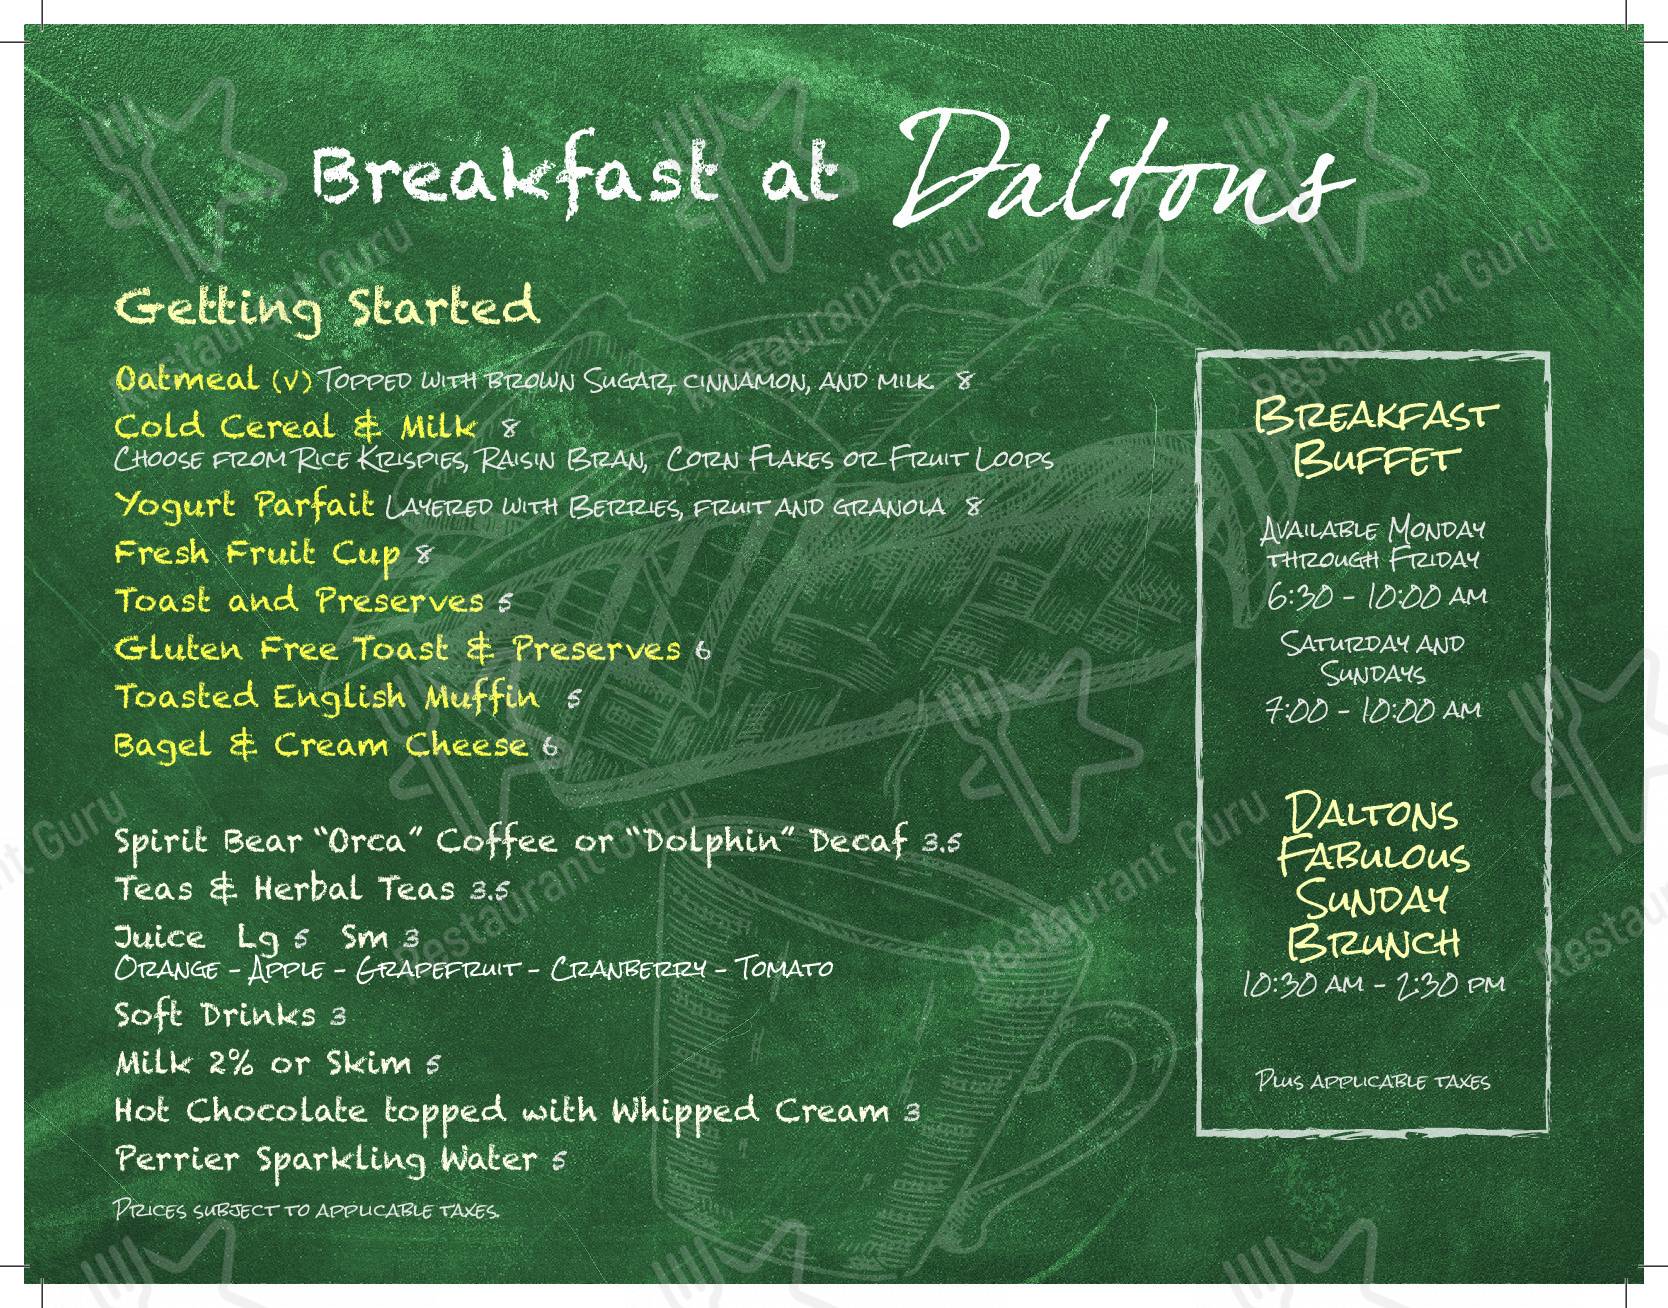 Breakfast at Daltons
Getting Started
Oatmeal (V) Topped with brown Sugar, cinnamon, and milk. 8
Cold Cereal & Milk 8
Choose from Rice Krispies, Raisin Bran, Corn Flakes or Fruit Loops
Yogurt Parfait Layered with Berries, fruit and granola 8
Fresh Fruit Cup 8
Toast and Preserves 5
Gluten Free Toast & Preserves 6
Toasted English Muffin 5
Bagel & Cream Cheese 6
Spirit Bear “Orca” Coffee or “Dolphin” Decaf 3.5
Teas & Herbal Teas 3.5
Juice Lg 5 Sm 3
Orange - Apple - Grapefruit - Cranberry - Tomato
Soft Drinks 3
Milk 2% or Skim 5
Hot Chocolate topped with Whipped Cream 3
Perrier Sparkling Water 5
Prices subject to applicable taxes.
Breakfast
Buffet
Available Monday
through Friday
6:30 - 10:00 am
Saturday and
Sundays
7:00 - 10:00 am
Daltons
Fabulous
Sunday
Brunch
10:30 am - 2:30 pm
Plus applicable taxes
Restaurant Guru
Restaurant Guru
Restaurant Guru
Restaurant Guru
Restaurant Guru